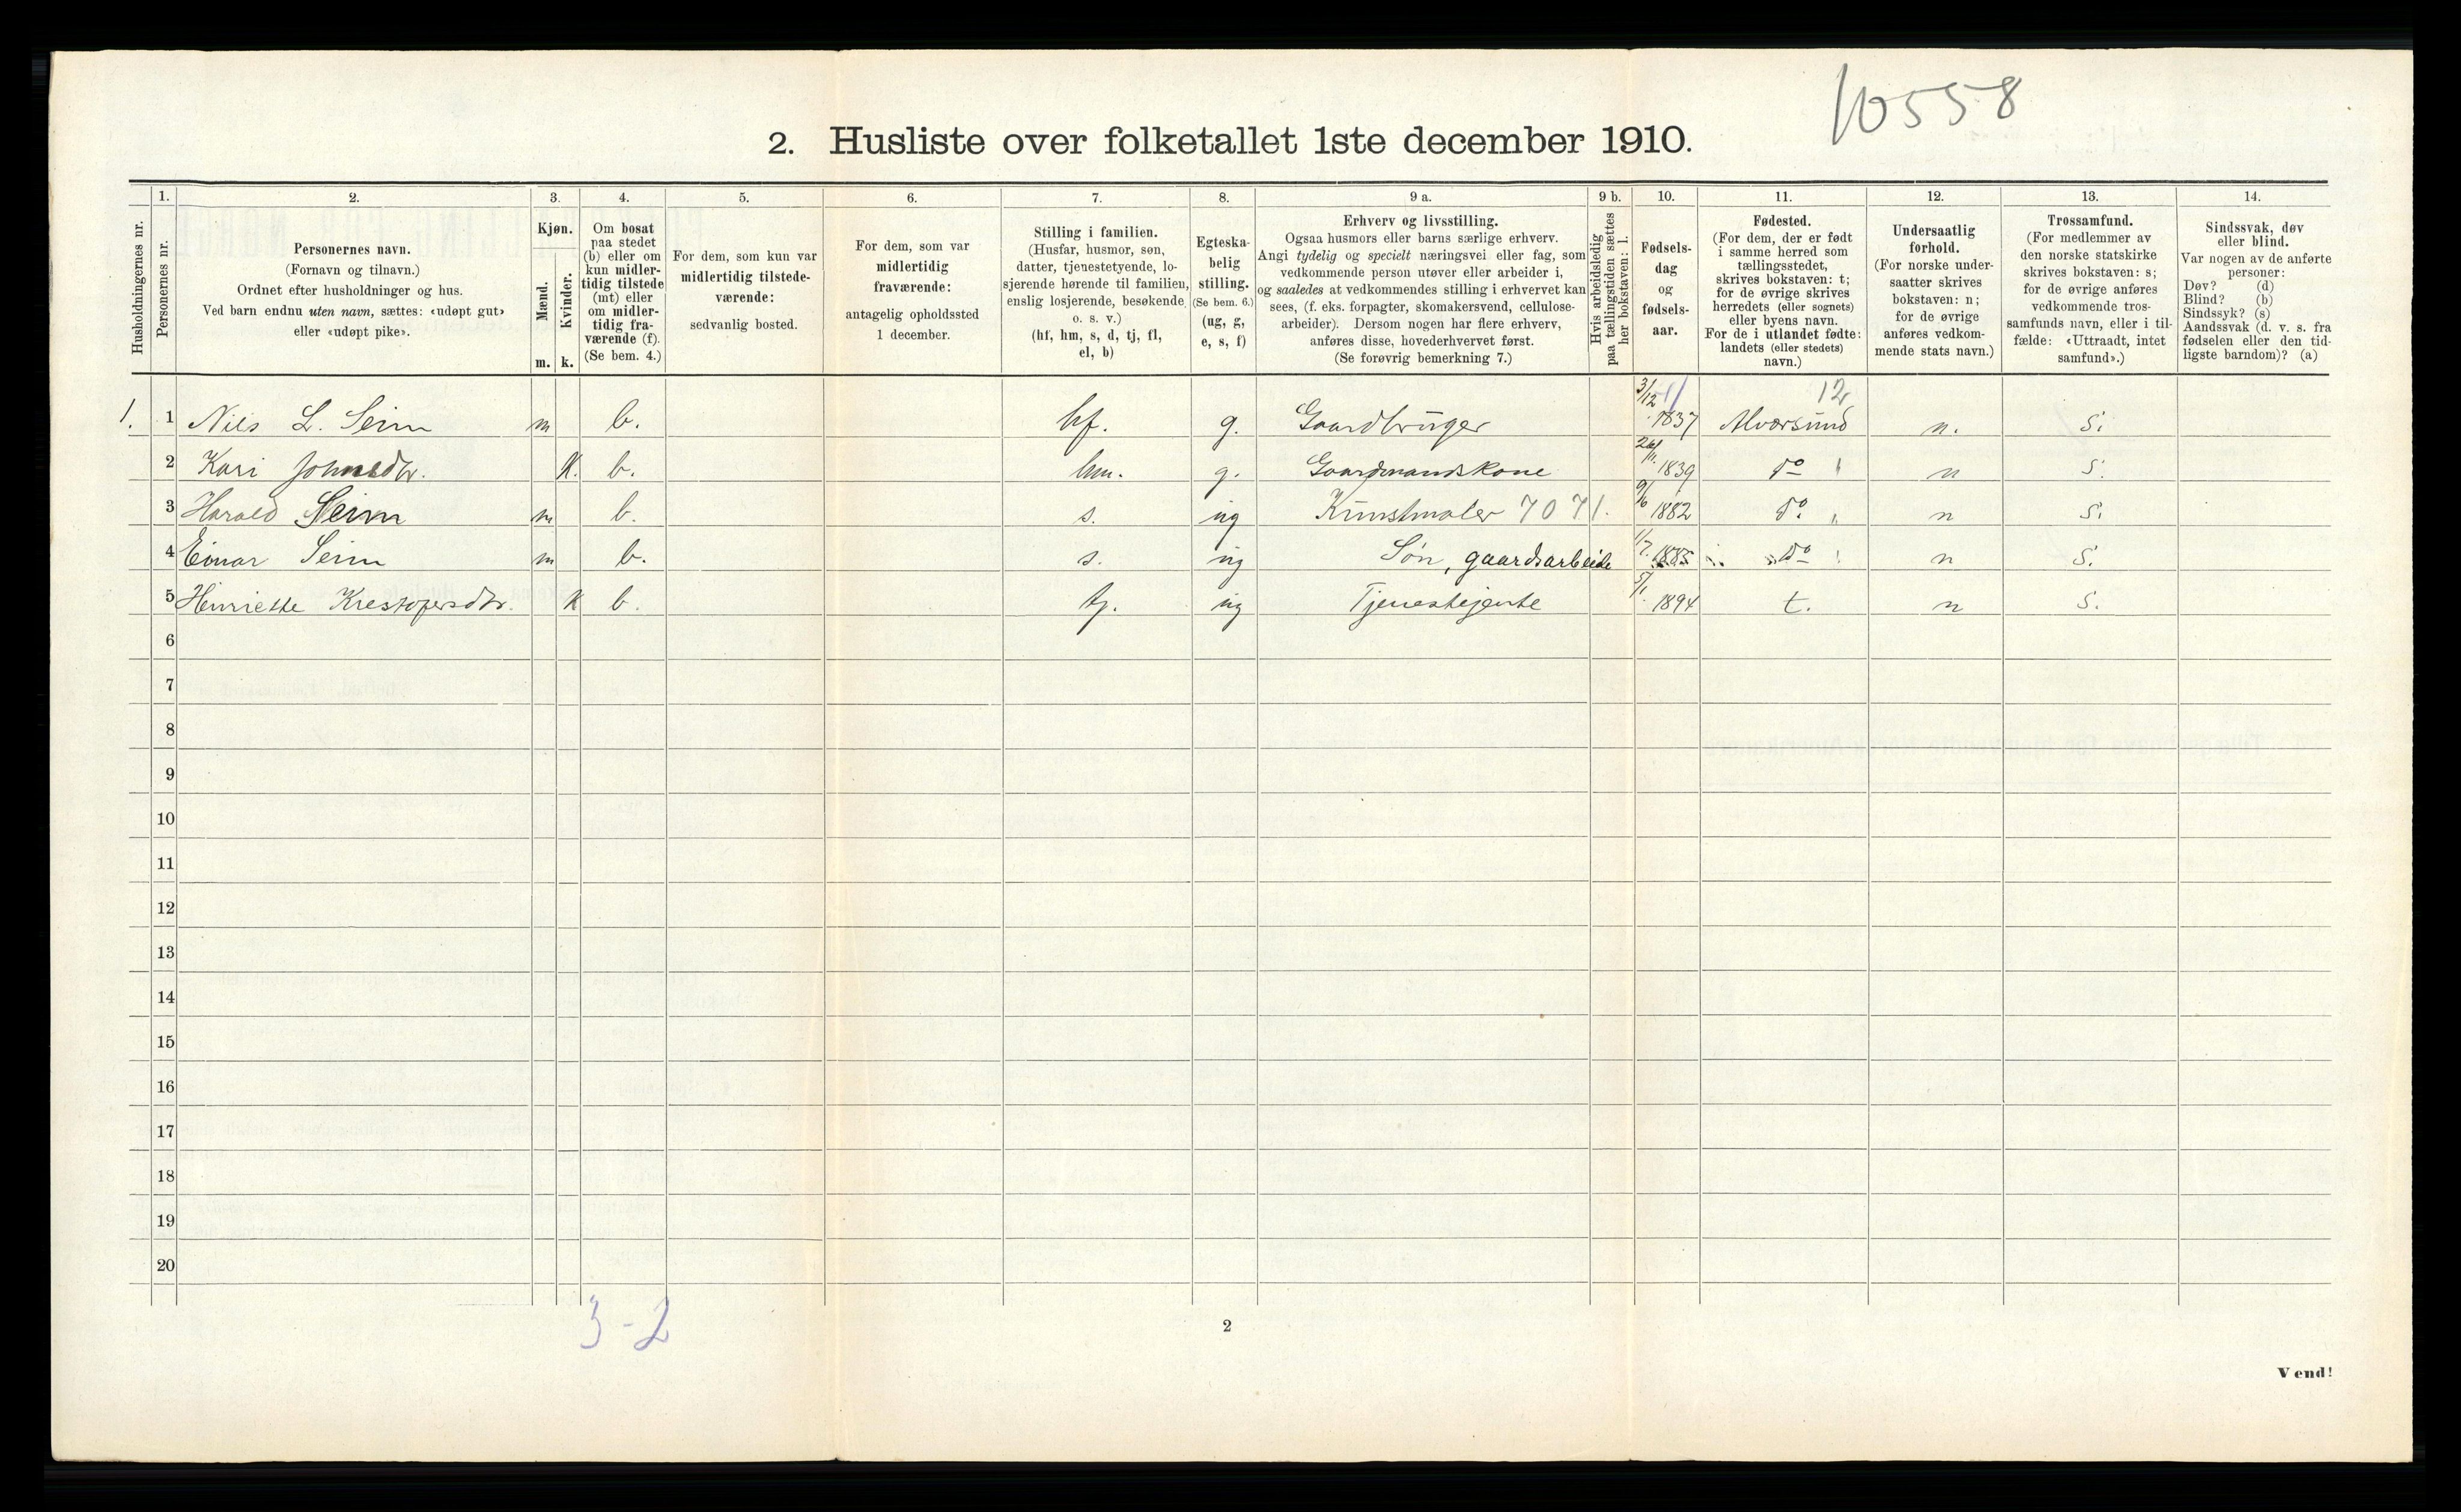 10558
2. Husliste over folketallet 1ste december 1910.
Husholdningernes nr.
1.
Personernes nr.
2.
Personernes navn.
(Fornavn og tilnavn.)
Ordnet efter husholdninger og hus.
Ved barn endnu uten navn, sættes: «udøpt gut»
eller «udøpt pike».
3.
Kjøn.
Mænd.
Kvinder.
m. k.
4.
Om bosat
paa stedet
(b) eller om
kun midler-
tidig tilstede
(mt) eller
om midler-
tidig fra-
værende (f).
(Se bem. 4.)
5.
For dem, som kun var
midlertidig tilstede-
værende:
sedvanlig bosted.
6.
For dem, som var
midlertidig
fraværende:
antagelig opholdssted
1 december.
7.
Stilling i familien.
(Husfar, husmor, søn,
datter, tjenestetyende, lo-
sjerende hørende til familien,
enslig losjerende, besøkende
o. s. v.)
(hf, hm, s, d, tj, fl,
el, b)
8.
Egteska-
belig
stilling.
(Se bem. 6.)
(ug, g,
e, s, f)
9 a.
Erhverv og livsstilling.
Ogsaa husmors eller barns særlige erhverv.
Angi tydelig og specielt næringsvei eller fag, som
vedkommende person utøver eller arbeider i,
og saaledes at vedkommendes stilling i erhvervet kan
sees, (f. eks. forpagter, skomakersvend, cellulose-
arbeider). Dersom nogen har flere erhverv,
anføres disse, hovederhvervet først.
(Se forøvrig bemerkning 7.)
9 b.
Hvis arbeidsledig
paa tællingstiden sættes
her bokstaven: l.
10.
Fødsels-
dag
og
fødsels-
aar.
11.
Fødested.
(For dem, der er født
i samme herred som
tællingsstedet,
skrives bokstaven: t;
for de øvrige skrives
herredets (eller sognets)
eller byens navn.
For de i utlandet fødte:
landets (eller stedets)
navn.)
12.
Undersaatlig
forhold.
(For norske under-
saatter skrives
bokstaven: n;
for de øvrige
anføres vedkom-
mende stats navn.)
13.
Trossamfund.
(For medlemmer av
den norske statskirke
skrives bokstaven: s;
for de øvrige anføres
vedkommende tros-
samfunds navn, eller i til-
fælde: «Uttraadt, intet
samfund».)
14.
Sindssvak, døv
eller blind.
Var nogen av de anførte
personer:
Døv? (d)
Blind? (b)
Sindssyk? (s)
Aandssvak (d. v. s. fra
fødselen eller den tid-
ligste barndom)? (a)
12
1. 1 Nils L. Seim m b. hf. g. Gaardbruger 3/12 1837 Alværsund n. s.
2 Kari Johnsdtr. K. b. hm. g. Gaardmandskone 26/11 1839 do n s.
3 Harald Seim m b. s. ug Kunstmaler 7071. 9/6 1882 do. n s.
4 Einar Seim m b. s. ug Søn, gaardsarbeide 1/7 1885 do n s.
5 Henriette Krestofersdtr. K b. tj. ug Tjenestejente 5/1 1894 t. n s.
6
7
8
9
10
11
12
13
14
15
16
17
18
19
20
3-2
2
Vend!